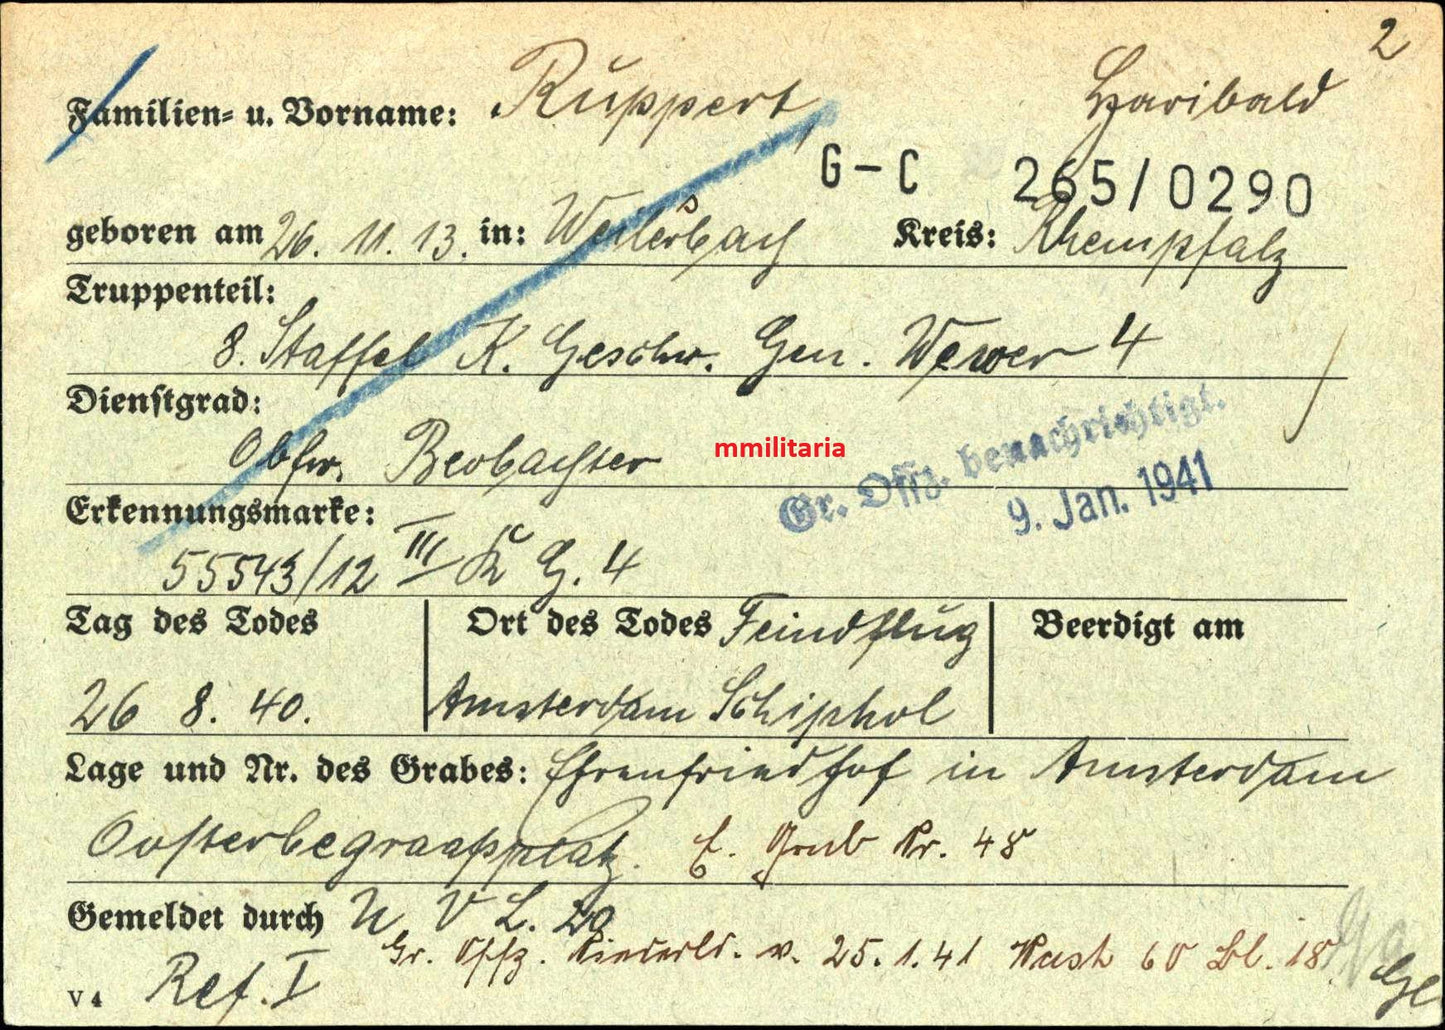 2
Familien- u. Vorname: Ruppert, Garibald
G-C 265/0290
geboren am 26. 11. 13. in: Weilerbach Kreis: Rheinpfalz
Truppenteil:
8. Staffel K. Geschw. Gen. Wever 4
Dienstgrad:
Obfw. Beobachter
mmilitaria
Gr. Offz. benachrichtigt.
9. Jan. 1941
Erkennungsmarke:
55543/12 III K G. 4
Tag des Todes Ort des Todes Feindflug Beerdigt am
26 8. 40. Amsterdam Schiphol
Lage und Nr. des Grabes: Ehrenfriedhof in Amsterdam
Oosterbegraafplatz. E. Grab Nr. 48
Gemeldet durch N V L. 20
Gr. Offz. Niederld. v. 25.1.41 60 Bl. 18
V 4 Ref. I